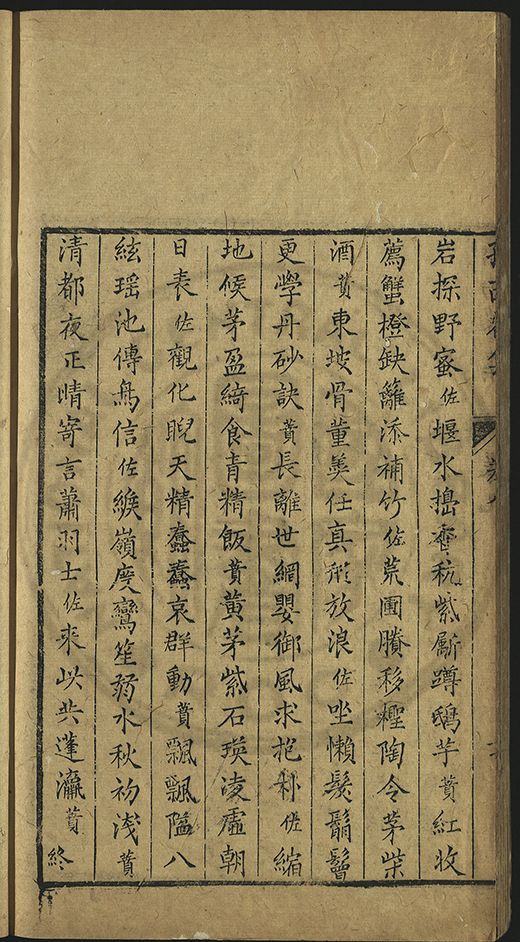 岩探野蜜佐堰水搗香秔紫劚蹲鴟芋賁紅收
薦蟹橙缺籬添補竹佐荒圃賸移檉陶令茅柴
酒賁東坡骨董羹任真形放浪佐坐懶髮鬅鬙
更學丹砂訣賁長離世網嬰御風求抱朴佐縮
地候茅盈綺食青精飯賁黄茅紫石瑛凌虛朝
日表佐觀化睨天精蠢蠢哀群動賁飄飄隘八
絃瑶池傳鳥信佐緱嶺度鸞笙弱水秋初淺賁
清都夜正晴寄言蕭羽士佐来此共蓬瀛賁終